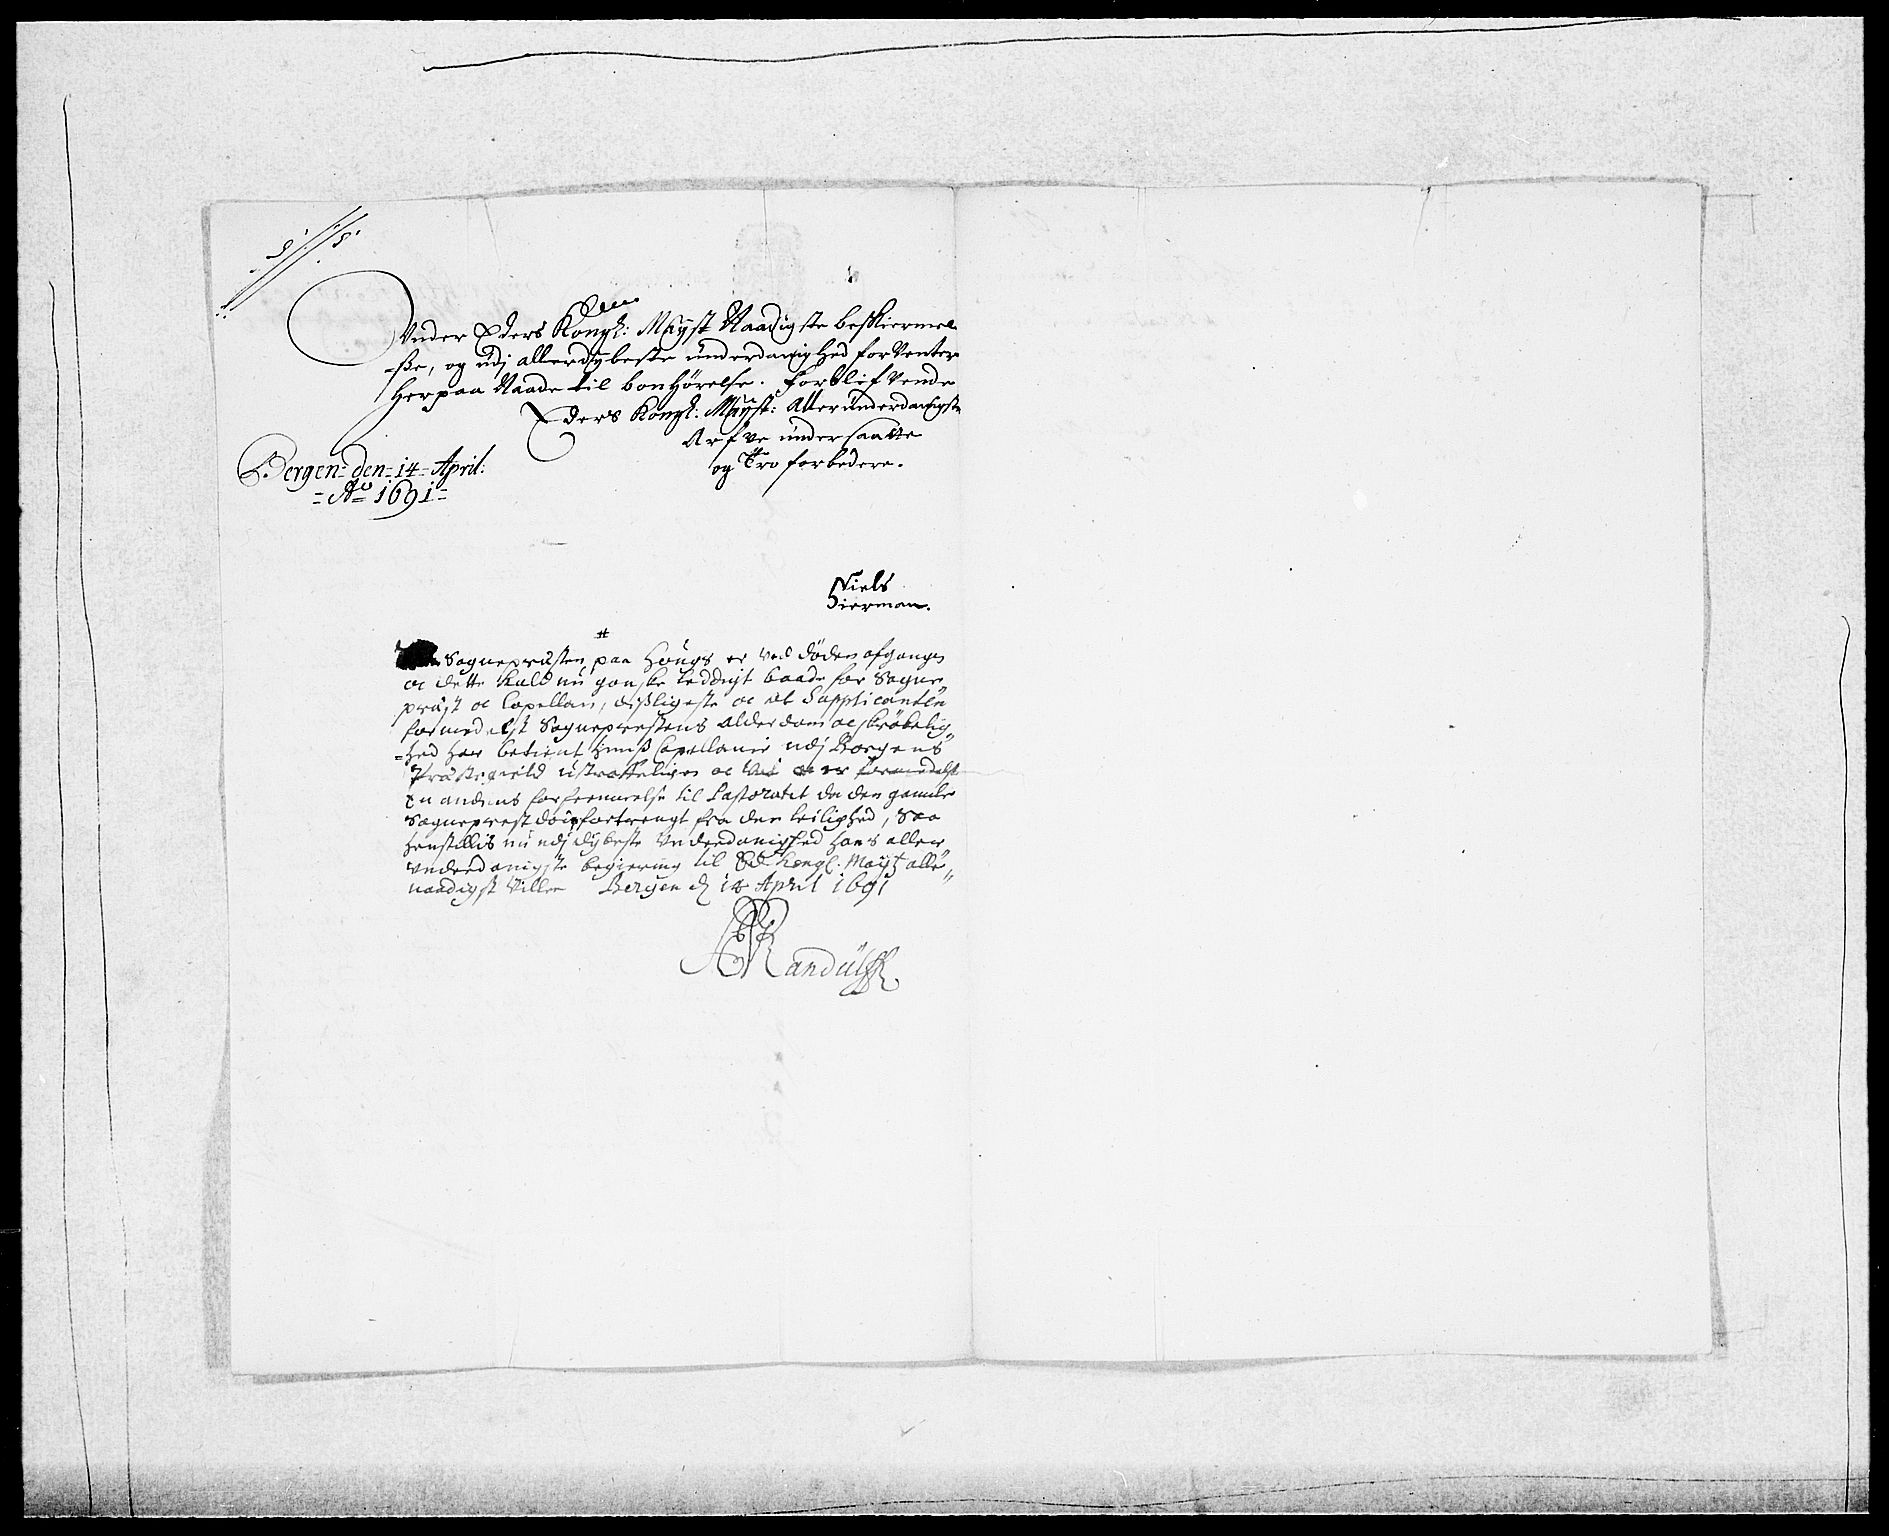 Under Eders Kongl: Mayst Naadigste beskiermel-
-ße, og udj allerdybeste ünderdanighed forventer
Herpaa Naade til bonhörelse. forblifvende
Eders Kongl: Mayst: Alleründerdanigste
Arfve undersaatte
og Tro forbedere.
Bergen= den= 14= April:
=Ao 1691=
Niels
Hierman.
Sognepræsten paa Hougs er ved döden afgangen
oc dette Kald nu ganske leddigt baade for Sogne
præst oc Capellan, dißligeste oc at Supplicanten
formedelst Sogneprestens alderdom oc skröbelig
=hed har betient hanß Capellanie udj Borgens
Præstegield ustraffeligen oc formedelst
en andens forfremmelse til Pastoratet da den gamle
Sogneprest döde fortrengt fra den leilighed, Saa
henstillis nu udj dybeste Underdanighed hans aller
underdanigste begiering til Ed Kongl: Mayt alle
naadigst Villie Bergen d 14 April 1691
Randulff